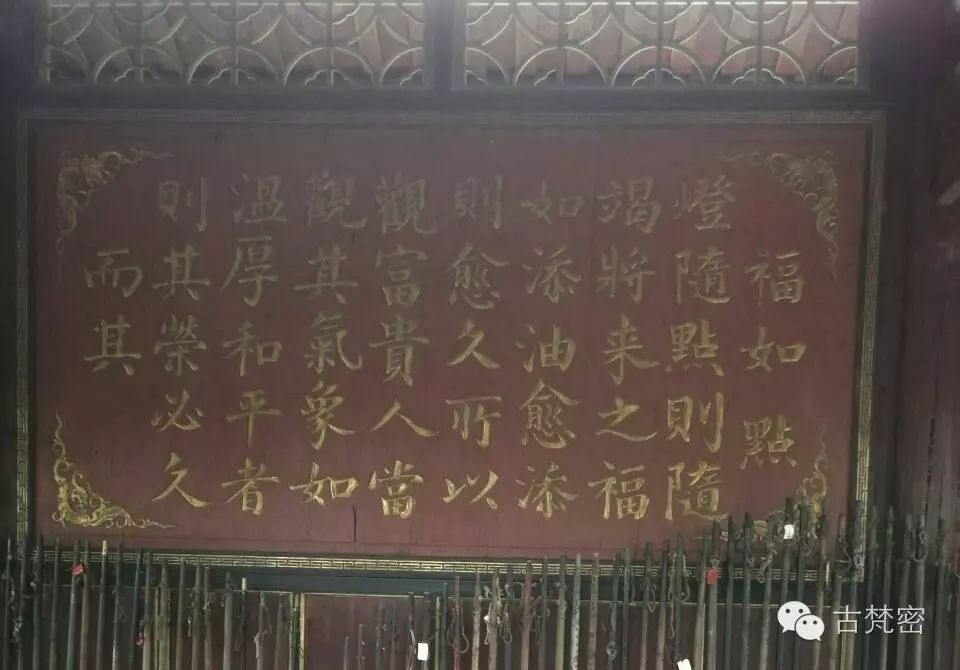 福如點
燈隨點則隨
竭將来之福
如添油愈添
則愈久所以
觀富貴人當
觀其氣象如
溫厚和平者
則其榮必久
而其
古梵密